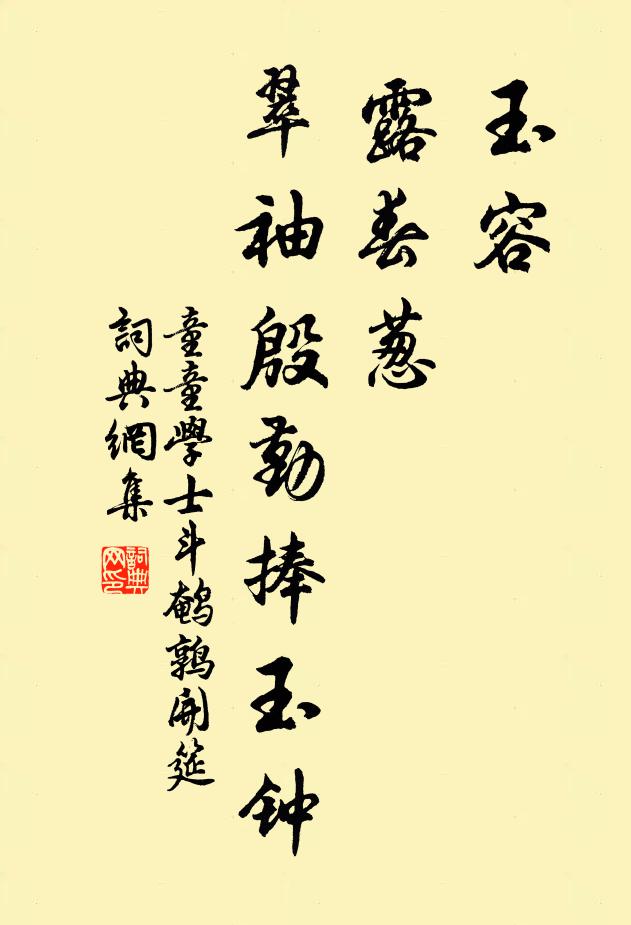 玉容
露春葱
翠袖殷勤捧玉钟
童童學士斗鹌鹑開筵
詞典網集
詞典网印